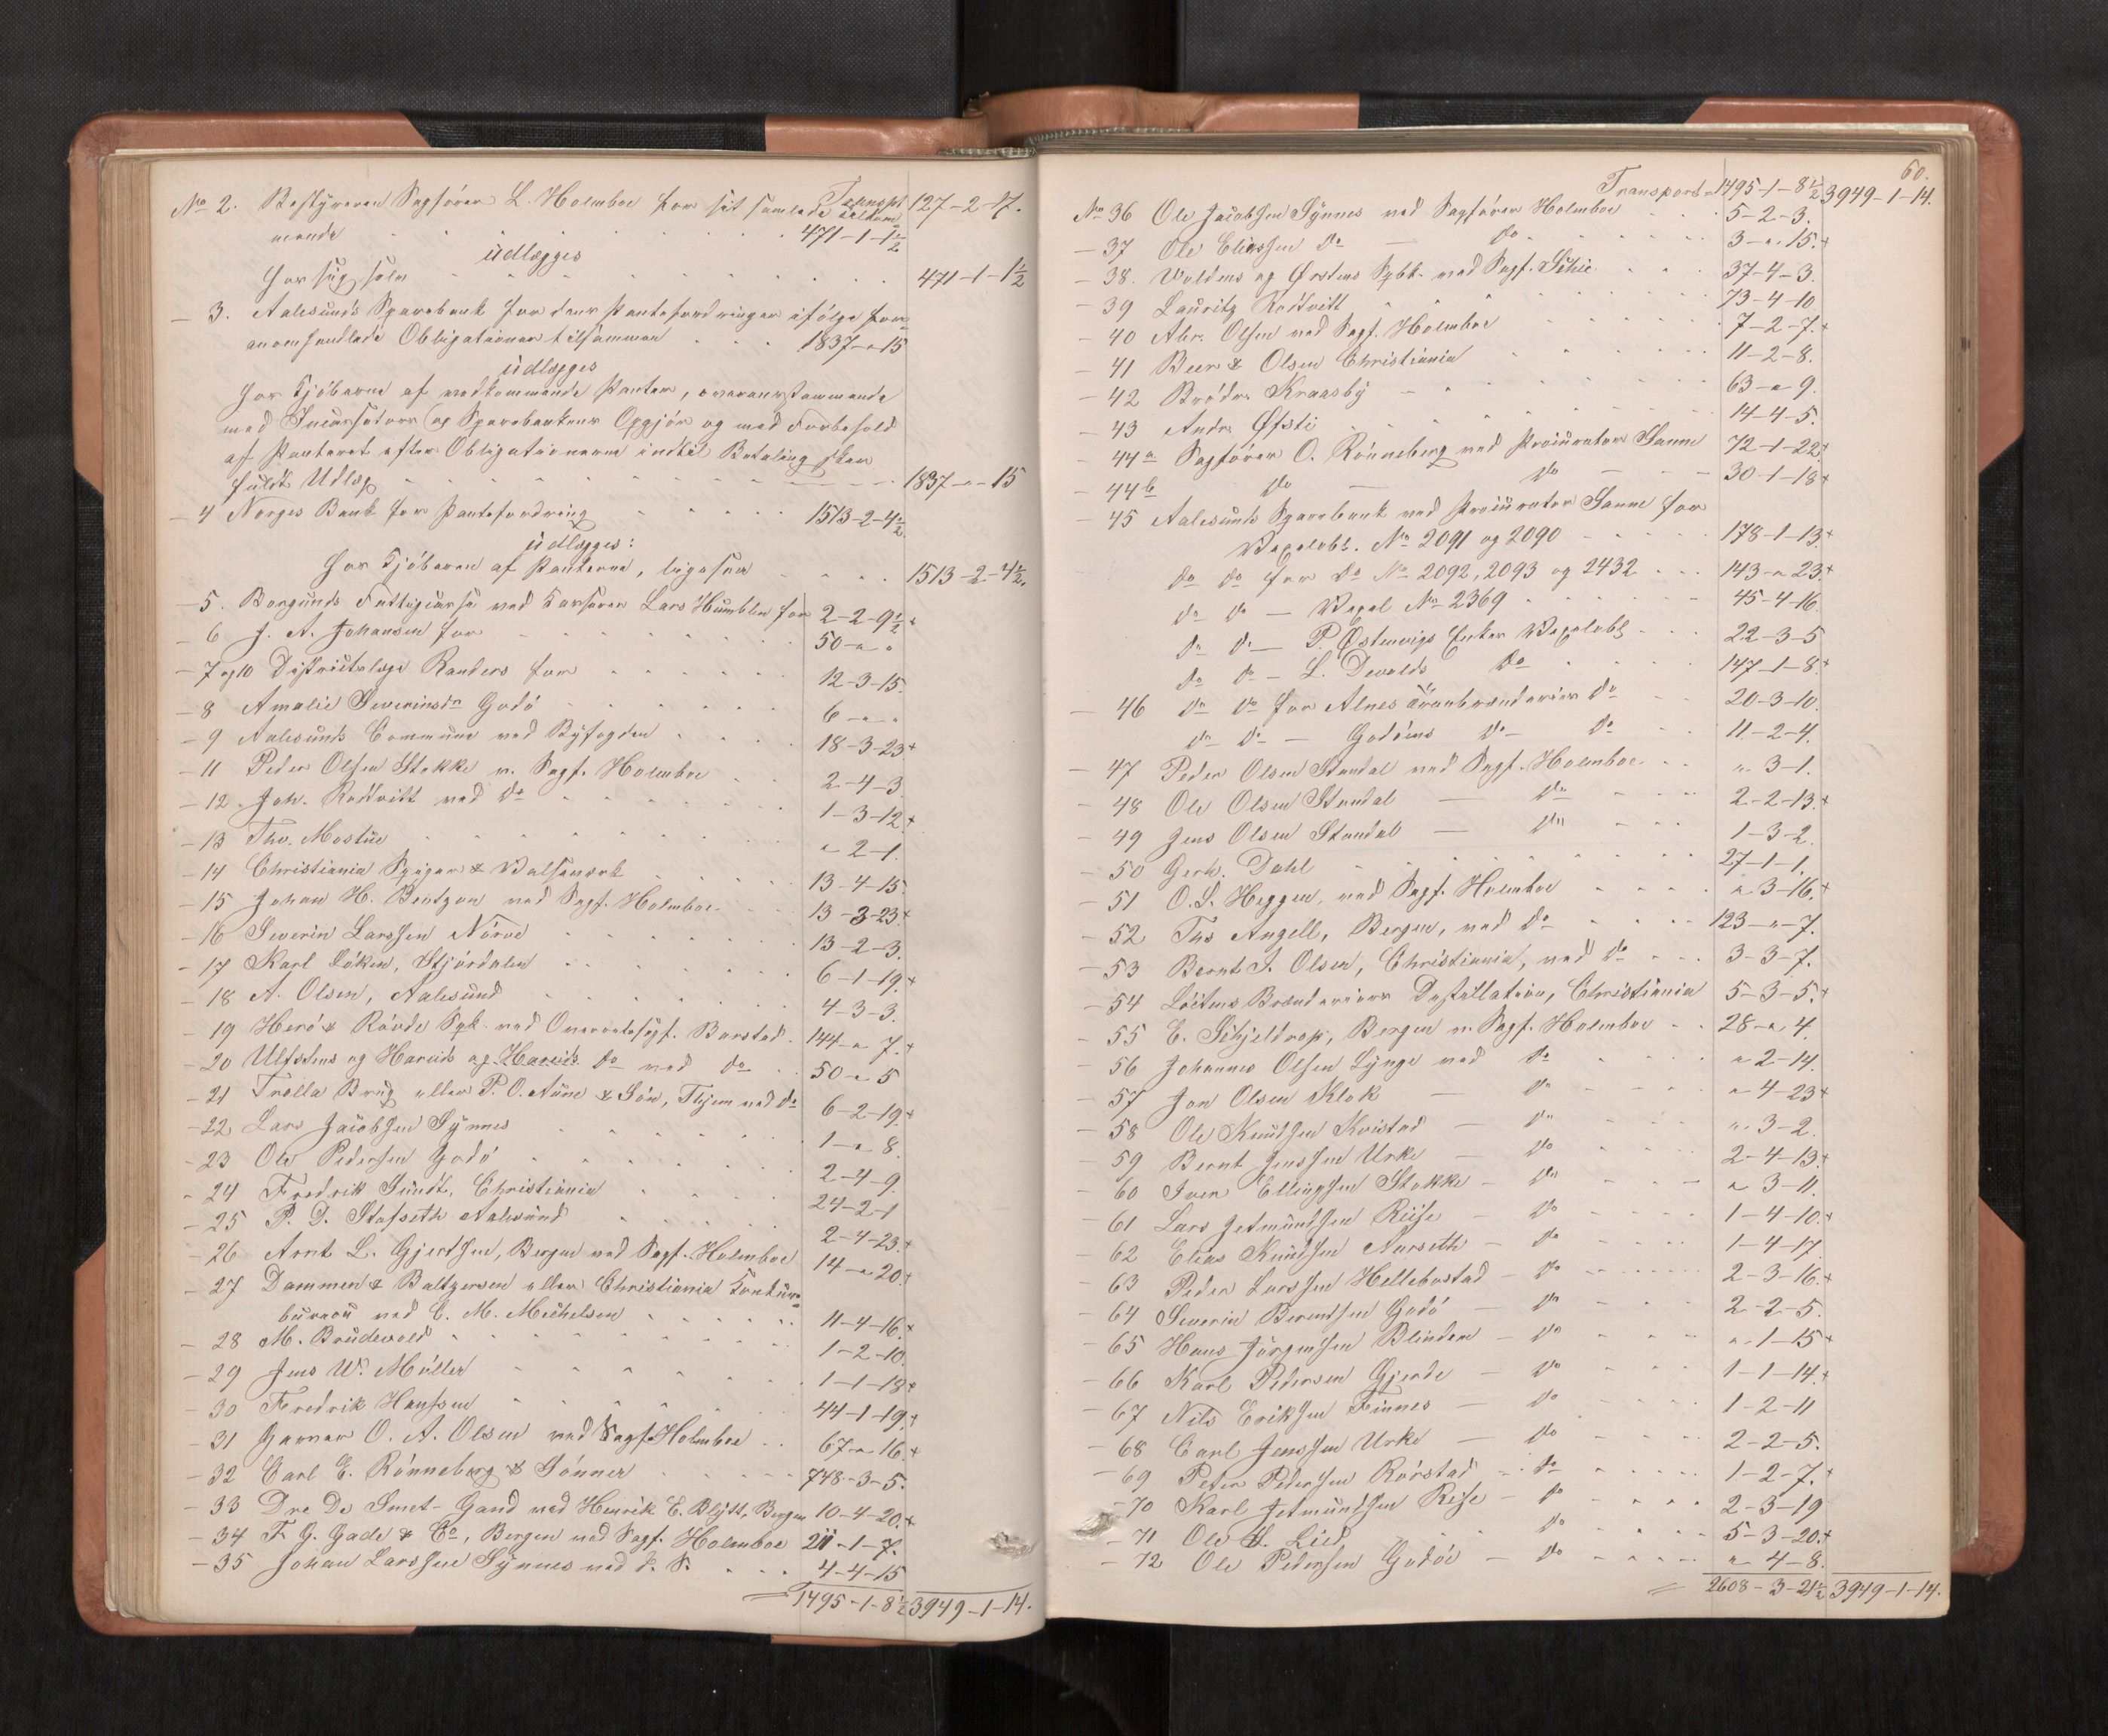 Transport 127-2-17.
No 2. Bestyreren Sagfører L. Holmboe for sit samlede Tilkom-
mende 471-1-1½
udlægges
hos sig selv 471-1-1½
- 3. Aalesunds Sparebank for dens Pantefordringer ifølge for-
anomhandlede Obligationer tilsammen 1837-"-15
udlægges
hos Kjøberne af vedkommende Panter, overensstemmende
med Incassators og Sparebankens Opgjør og med Forbehold
af Panteret efter Obligationerne indtil Betaling sker
fuldt Udlæg 1837-"-15
- 4 Norges Bank for Pantefordring 1513-2-4½.
udlægges:
hos Kjøberen af Panterne, ligesaa 1513-2-4½.
- 5. Borgunds Fattigcasse ved Kasserer Lars Humblen for 2-2-9½+
- 6 J. A. Johansen for 50-"-"
- 7 og 10 Distriktslæge Randers for 12-3-15.
- 8 Amalie Severinsdr Godø 6-"-"
- 9 Aalesunds Commune ved Byfogden 18-3-23+
- 11 Peder Olsen Stokke v. Sagf. Holmboe 2-4-3.
- 12. Joh. Rødtvitt ved do 1-3-12.+
- 13 Tho. Mostue "-2-1.
- 14 Christiania Spiger & Valseverk 13-4-15.
- 15 Johan H. Bentzon ved Sagf. Holmboe 13-3-23+
- 16 Severin Larssen Nørve 13-2-3.
- 17 Karl Løken, Stjørdalen 6-1-19.+
- 18 A. Olsen, Aalesund 4-3-3.
- 19 Herø & Røvde Spk. ved Overretssagf. Barstad 144-"-7.+
- 20 Ulfstens og Hareids og Hareids do ved do 50-"-5
- 21 Trolla Brug eller P. O. Aune & Søn, Thjem ved do 6-2-19.+
- 22 Lars Jacobsen Synnes 1-"-8.
- 23 Ole Pedersen Godø 2-4-9.
- 24 Fredrik Sundt, Christiania 24-2-1
- 25 P. D. Stafseth Aalesund 2-4-23.+
- 26 Arnt L. Gjertsen, Bergen ved Sagf. Holmboe 14-"-20.+
- 27 Dammen & Baltzersen eller Christiania Konkurs-
bureau ved C. M. Michelsen 11-4-16.+
- 28 M. Brudevold 1-2-10.
- 29 Jens W. Møller 1-1-18+
- 30 Fredrik Hanssen 44-1-19.+
- 31 Garver O. A. Olsen ved Sagf. Holmboe 67-"-16.+
- 32 Carl E. Rønneberg & Sønner 748-3-5.
- 33 Dre De Smet-Gand ved Henrik E. Blytt, Bergen 10-4-20.+
- 34 F. G. Gade & Co, Bergen ved Sagf. Holmboe 211-1-7.
- 35 Johan Larssen Synnes ved d. S. 4-4-15
1495-1-8½ 3949-1-14.
60.
Transport 1495-1-8½ 3949-1-14.
No 36 Ole Jacobsen Synnes ved Sagfører Holmboe 5-2-3.
- 37 Ole Eliassen do - do 3-"-15.+
- 38. Voldens og Ørstens Spbk. ved Sagf. Schie 37-4-3.
- 39 Lauritz Rødtvitt 73-4-10
- 40 Abr. Olsen ved Sagf. Holmboe 7-2-7.+
- 41 Beer & Olsen Christiania 11-2-8.
- 42 Brødr. Kraasby 63-"-9.
- 43 Andr. Øfsti 14-4-5.
- 44a Sagfører O. Rønneberg ved Procurator Sanne 72-1-22+
- 44b do - do 30-1-18+
- 45 Aalesunds Sparebank ved Procurator Sanne for
Vexelobl. No 2091 og 2090 178-1-13.+
do do for do No 2092, 2093 og 2432 143-"-23.+
do do - Vexel No 2369 45-4-16
do do - P. Østenvigs Enkes Vexelobl. 22-3-5
do do - L. Devolds do 147-1-8+
- 46 do do for Alnes Tranbrænderies do 20-3-10.
do do - Godøens do do 11-2-4.
- 47 Peder Olsen Standal ved Sagf. Holmboe "-3-1.
- 48 Ole Olsen Standal - do 2-2-13.+
- 49 Jens Olsen Standal - do 1-3-2.
- 50 Gerh. Dahl 27-1-1.
- 51 O. S. Heggen, ved Sagf. Holmboe "-3-16.+
- 52 Ths Angell, Bergen, ved do 123-"-7.
- 53 Bernt I. Olsen, Christiania, ved do 3-3-7.
- 54 Løitens Brænderiers Destillation, Christiania 5-3-5.+
- 55 E. Schjeldrop, Bergen v. Sagf. Holmboe 28-"-4.
- 56 Johannes Olsen Lynge ved do "-2-14.
- 57 Jon Olsen Klok - do "-4-23+
- 58 Ole Knudsen Kvistad - do "-3-2.
- 59 Bernt Jenssen Urke - do 2-4-13.+
- 60 Iver Ellingsen Stokke - do "-3-11.
- 61 Lars Jetmundsen Riise - do 1-4-10.+
- 62 Elias Knudsen Aurseth - do 1-4-17.
- 63 Peder Larssen Hellebostad - do 2-3-16.+
- 64 Severin Berntsen Godø - do 2-2-5.
- 65 Hans Jørgensen Blinden - do "-1-15+
- 66 Karl Pedersen Gjerde - do 1-1-14.+
- 67 Nils Eriksen Finnes - do 1-2-11
- 68 Carl Jenssen Urke - do 2-2-5.
- 69 Peter Pedersen Rørstad - do 1-2-7.+
- 70 Karl Jetmundsen Riise - do 2-3-19
- 71 Ole L. Lied do 5-3-20.+
- 72 Ole Pedersen Godøe - do "-4-8.
2608-3-21½ 3949-1-14.